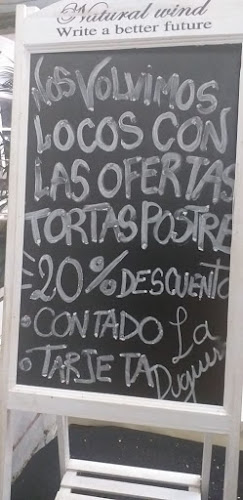 Natural wind
Write a better future
NOS VOLVIMOS
LOCOS CON
LAS OFERTAS
TORTAS POSTRE
20% DESCUENTO
• CONTADO
• TARJETA
La